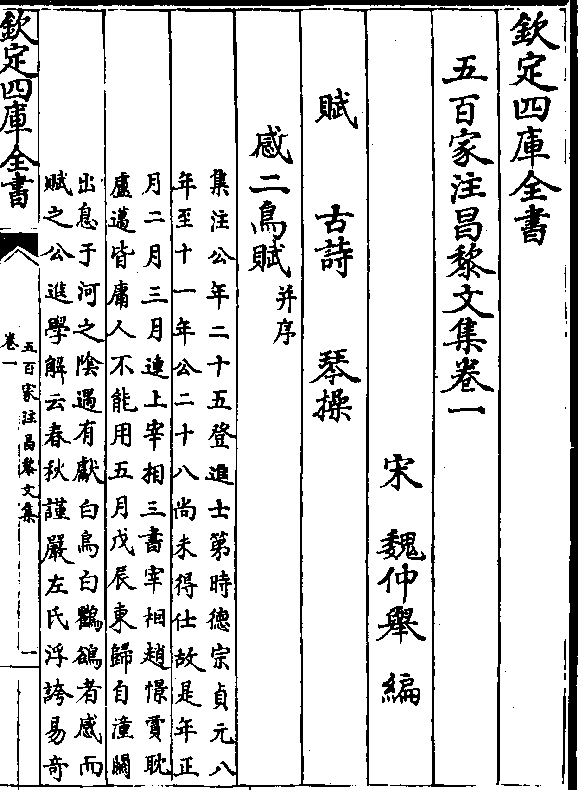 欽定四庫全書
五百家注昌黎文集卷一
宋 魏仲舉 編
賦 古詩 琴操
感二鳥賦并序
集注公年二十五登進士第時德宗貞元八
年至十一年公二十八尚未得仕故是年正
月二月三月連上宰相三書宰相趙憬賈耽
盧邁皆庸人不能用五月戊辰東歸自潼關
出息于河之陰遇有獻白烏白鸜鵒者感而
賦之公進學解云春秋謹嚴左氏浮誇易奇
欽定四庫全書
五百家注昌黎文集
卷一
一